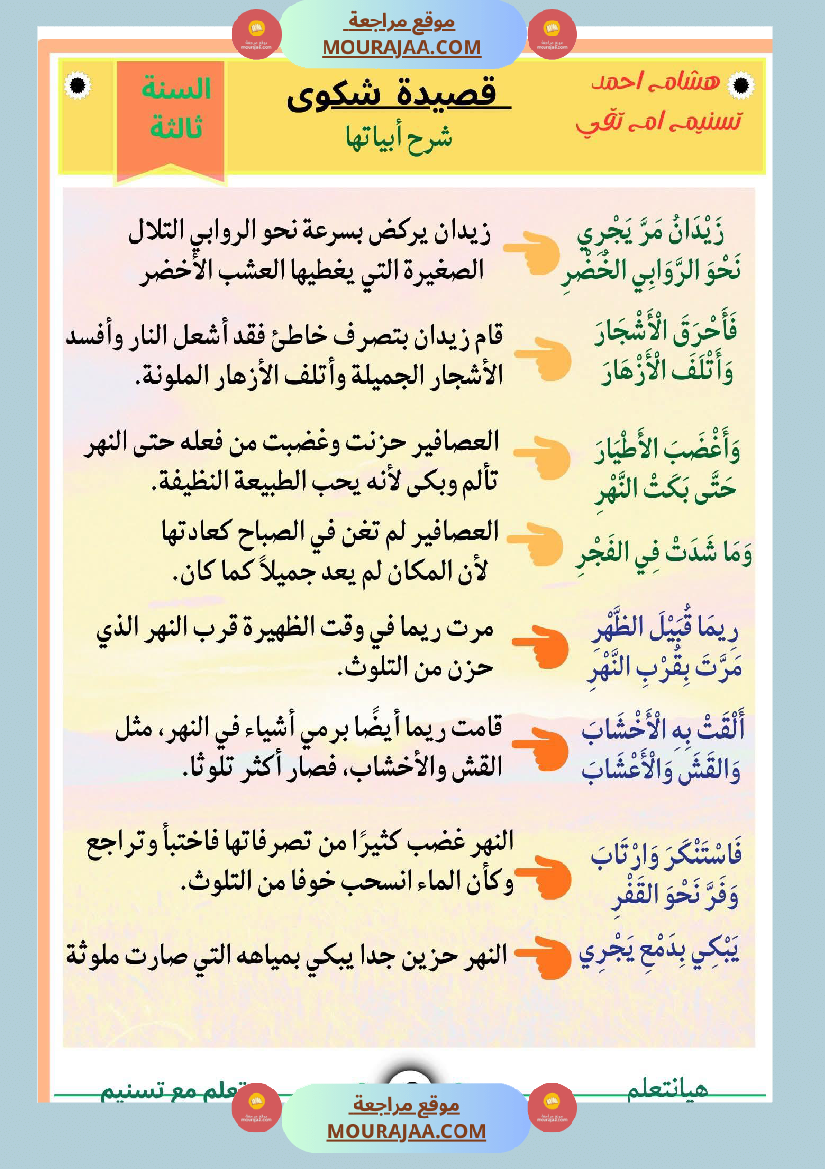 موقع مراجعة
MOURAJAA.COM
هشام احمد
تسنيم ام تقي
قصيدة شكوى
شرح أبياتها
السنة
ثالثة
زَيْدَانُ مَرَّ يَجْرِي
نَحْوَ الرَّوَابِي الخُضْرِ
زيدان يركض بسرعة نحو الروابي التلال
الصغيرة التي يغطيها العشب الأخضر
فَأَحْرَقَ الْأَشْجَارَ
وَأَتْلَفَ الْأَزْهَارَ
قام زيدان بتصرف خاطئ فقد أشعل النار وأفسد
الأشجار الجميلة وأتلف الأزهار الملونة.
وَأَغْضَبَ الأَطْيَارَ
حَتَّى بَكَتْ النَّهْرِ
العصافير حزنت وغضبت من فعله حتى النهر
تألم وبكى لأنه يحب الطبيعة النظيفة.
وَمَا شَدَتْ فِي الفَجْرِ
العصافير لم تغن في الصباح كعادتها
لأن المكان لم يعد جميلاً كما كان.
رِيمَا قُبَيْلَ الظَّهْرِ
مَرَّتَ بِقُرْبِ النَّهْرِ
مرت ريما في وقت الظهيرة قرب النهر الذي
حزن من التلوث.
أَلْقَتْ بِهِ الْأَخْشَابَ
وَالقَشَّ وَالْأَعْشَابَ
قامت ريما أيضًا برمي أشياء في النهر، مثل
القش والأخشاب، فصار أكثر تلوثا.
فَاسْتَنْكَرَ وَارْتَابَ
وَفَرَّ نَحْوَ القَفْرِ
النهر غضب كثيرًا من تصرفاتها فاختبأ وتراجع
وكأن الماء انسحب خوفا من التلوث.
يَبْكِي بِدَمْعِ يَجْرِي
النهر حزين جدا يبكي بمياهه التي صارت ملوثة
هيانتعلم
تعلم مع تسنيم
موقع مراجعة
MOURAJAA.COM